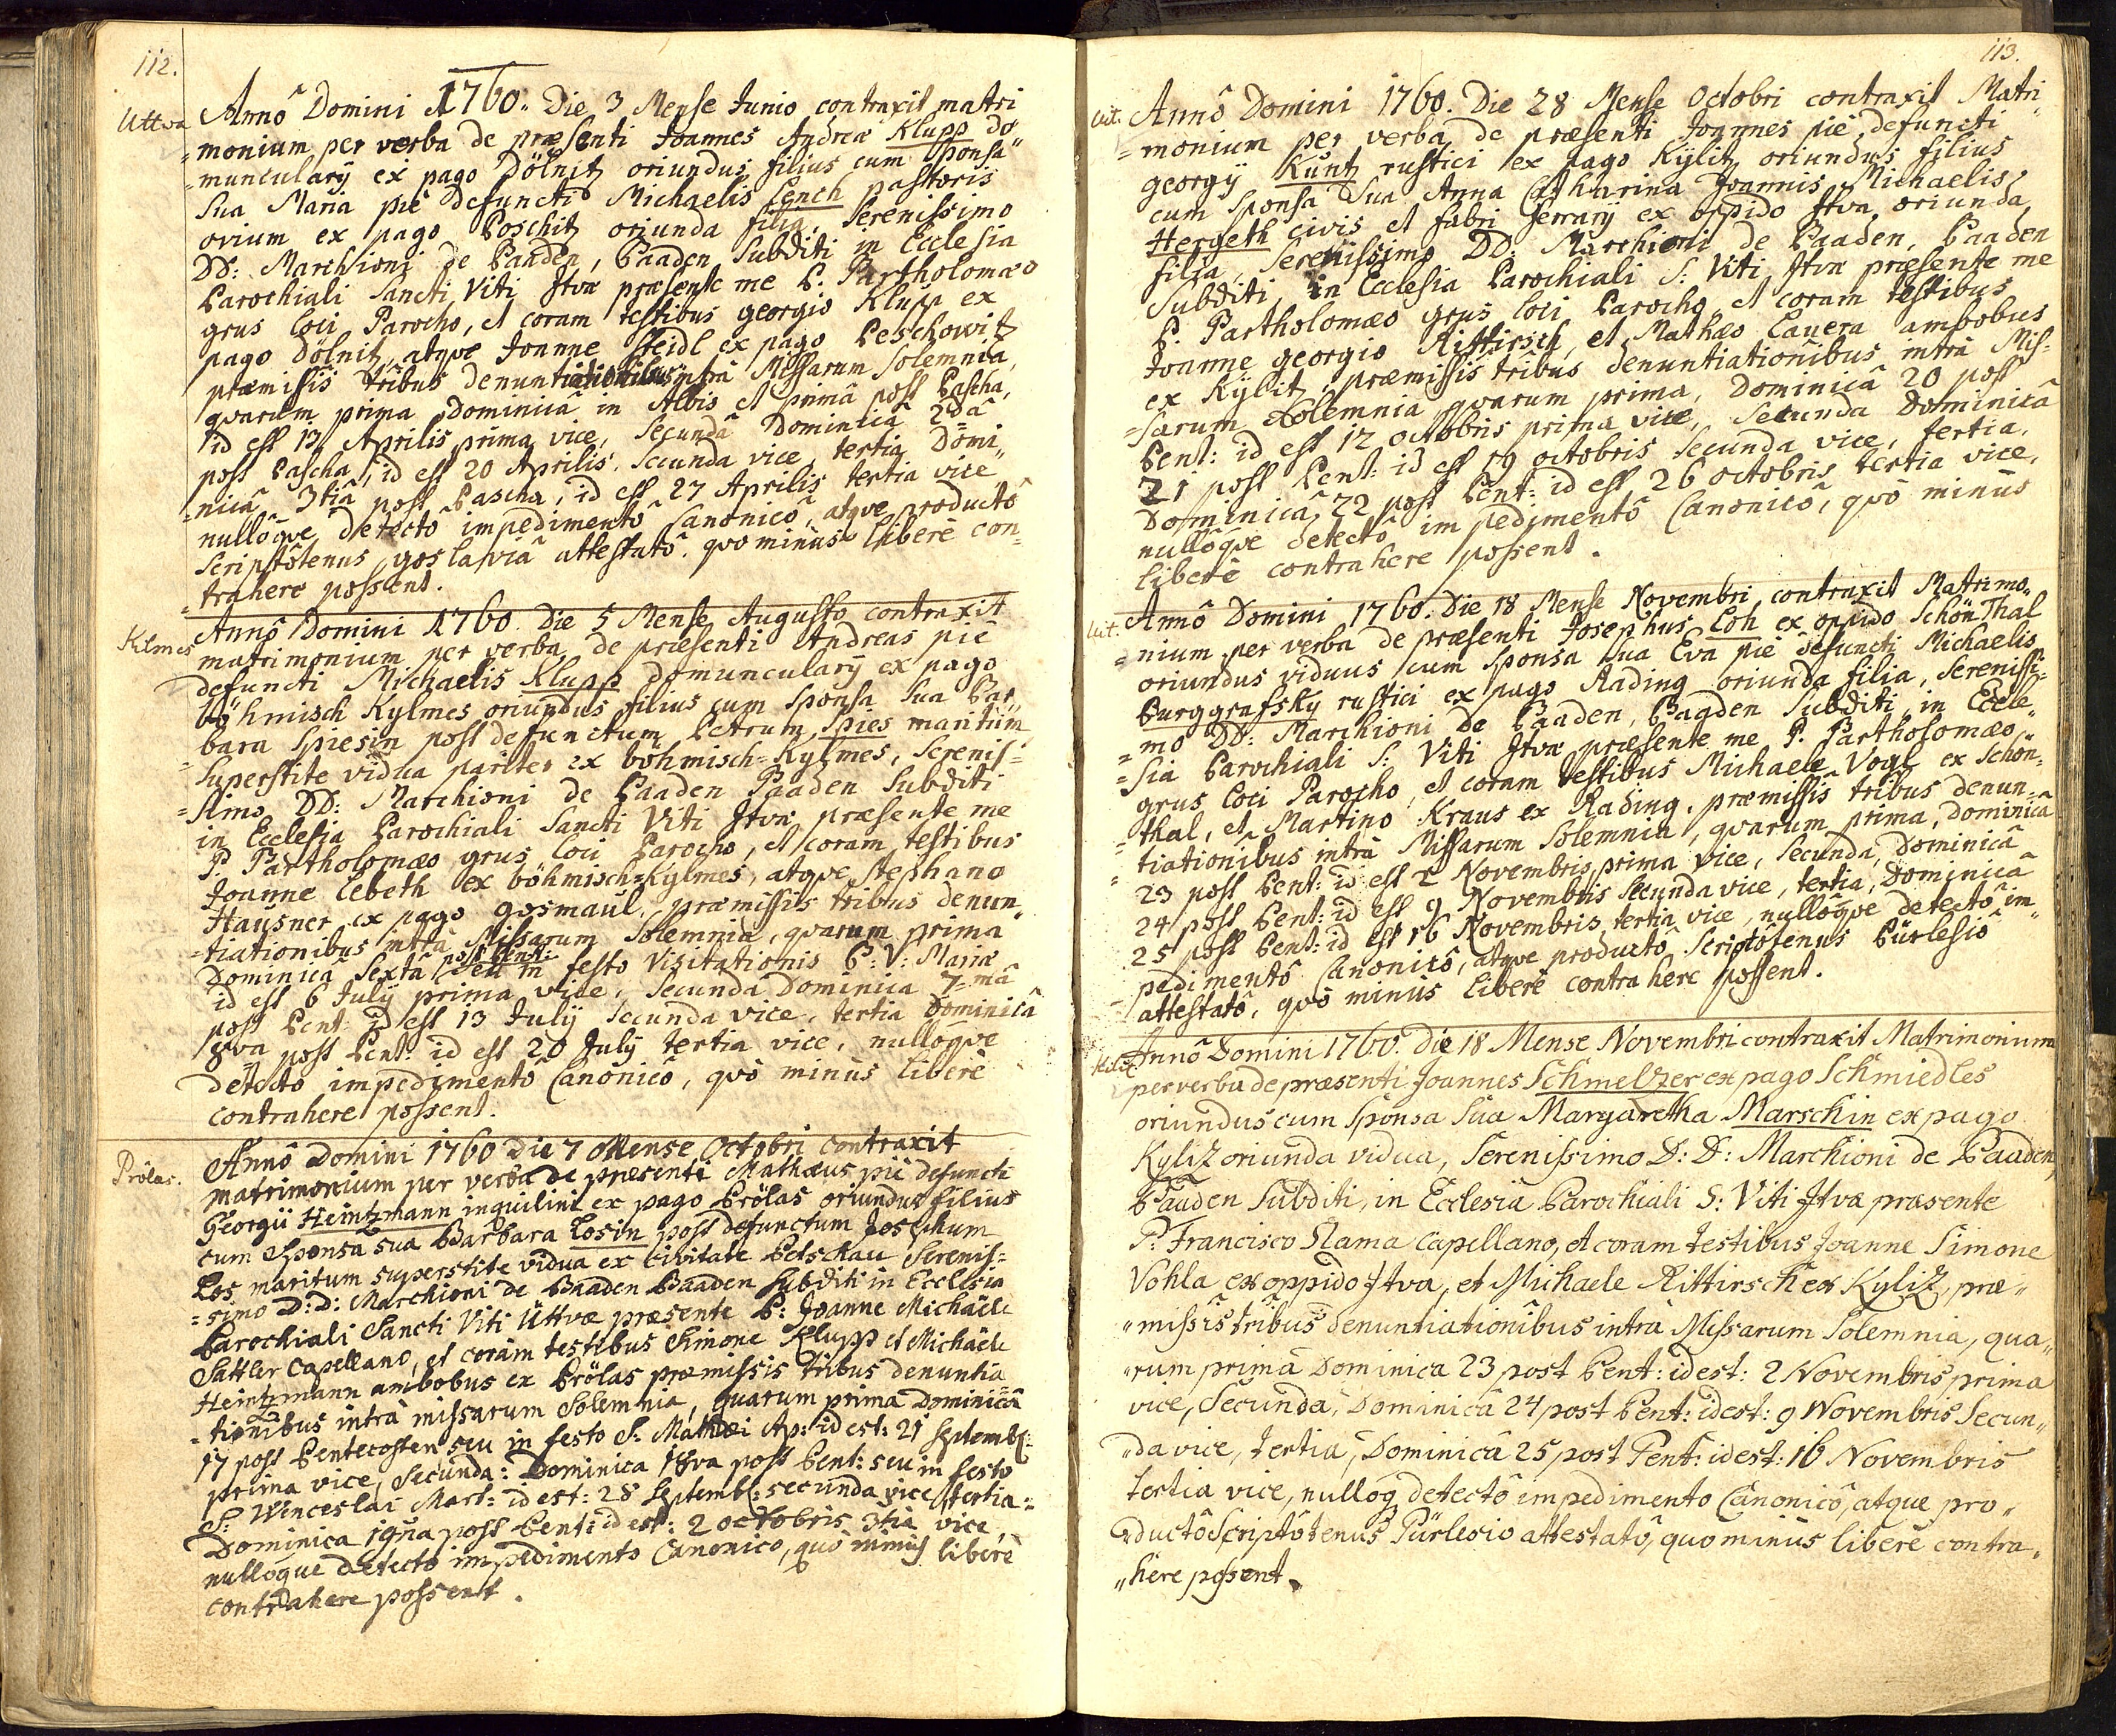 112.
Uttva
Annô Domini 1760. Die 3 Mense Junio contraxit matri
=monium per verba de præsenti Joannes Andreæ Klupp do
=muncularÿ ex pago Dölnitz oriundus filius cum sponsa
sua Maria piè defuncti Michaelis Lench pastoris
ovium ex pago Poschitz oriunda filia, Serenissimo
DD: Marchioni de Baaden, Baaden Subditi in Ecclesia
Parochiali Sancti Viti Jtvæ præsente me P. Partholomæo
grus loci Parocho, et coram testibus georgio Klupp ex
pago Dölnitz, atqve Joanne Heidl ex pago Peschowitz
præmissis tribus denuntiationibus intrà Missarum Solemnia,
qvarum prima Dominicâ in Albis et primâ post Pascha,
id est 13 Aprilis prima vice, secundâ Dominicâ 2dâ
post Pascha, id est 20 Aprilis, secunda vice, tertia Domi„
=nicâ 3tiâ post Pascha, id est 27 Aprilis tertia vice
nullôqve detectô impedimentô Canonicô, atqve productô
Scriptôtenus goslaviâ attestatô, quo minùs liberè con=
=trahere possent.
Kÿlmes
Annô Domini 1760. Die 5 Mense Augusto contraxit
matrimonium per verba de præsenti Andreas piè
defuncti Michaelis Klupp domuncularÿ ex pago
böhmisch Kylmes oriundus filius cum sponsa sua Bar„
bara Spiesin post defunctum Petrum Spies maritum
superstite vidua pariter ex böhmisch=Kylmes, Serenis=
=simo DD: Marchioni de Baaden Baaden Subditi
in Ecclesia Parochiali Sancti Viti Jtvæ præsente me
P. Partholomæo grus loci Parocho, et coram testibus
Joanne Lebeth ex böhmisch=Kylmes, atqve Stephano
Hausner ex pago gosmaul, præmissis tribus denun„
=tiationibus intrà Missarum Solemnia, qvarum prima
Dominicâ Sextâ post Pent: seu in festo Visitationis B: V: Mariæ
id est 6 Julÿ prima vice, secunda Dominica 7=mâ
post Pent: id est 13 Julÿ secunda vice, tertia Dominicâ
8va post Pent: id est 20 Julÿ tertia vice, nullôqve
detecto impedimentô Canonicô, quò minùs liberè
contrahere possent.
Prölas.
Annô Domini 1760 Die 7 Mense Octobri contraxit
matrimonium per verba de præsenti Mathæus piè defuncti
Georgii Heintzmann inquilini ex pago Prölas oriundus filius
cum Sponsa sua Barbara Losin post defunctum Josephum
Los maritum superstite vidua ex civitate Petschau Serenis=
=simo D: D: Marchioni de Baaden Baaden Subditi in Ecclesia
Parochiali Sancti Viti Üttvæ præsente P: Joanne Michäele
Sattler Capellano, et coràm testibus Simone Klupp et Michäele
Heintzmann ambobus ex Prölas præmissis tribus denuntia
=tionibus intrà missarum Solemnia, quarum prima Dominicâ
17 post Pentecosten seu in festo S: Mathæi Ap: id est: 21 Septemb:
prima vice, Secunda: Dominica 18va post Pent: seu in festo
S: Winceslai Mart: id est: 28 Septemb: secunda vice, tertia:
Dominica 19na post Pent: id est: 2 octobris 3tia vice,
nullôque detecto impedimento Canonico, quò minus liberè
contrahere possent.
113.
Uit.
Annô Domini 1760. Die 28 Mense Octobri contraxit Matri„
=monium per verba de præsenti Joannes piè defuncti
georgÿ Kuntz rustici ex pago Kÿlitz oriundus filius
cum sponsa sua Anna Catharina Joannis Michaelis
Hergeth civis et fabri ferrarÿ ex oppido Jtva oriunda
filia, Serenissimo DD: Marchioni de Baaden, Baaden
Subditi, in Ecclesia Parochiali S: Viti Jtvæ præsente me
P. Partholomæo grus loci Parocho et coram testibus
Joanne georgio Rittirsch, et Mathæo Lauera ambobus
ex Kÿlitz, præmissis tribus denuntiationibus intrà Mis=
=sarum Solemnia, qvarum prima, Dominicâ 20 post
Pent: id est 12 octobris prima vice, secunda Dominicâ
21 post Pent: id est 19 octobris secunda vice, tertia,
Dominicâ 22 post Pent: id est 26 octobris tertia vice,
nullôqve detectô impedimentô Canonicô, quò minùs
liberè contrahere possent.
Uit.
Annô Domini 1760. Die 18 Mense Novembri contraxit Matrimo„
=nium per verba de præsenti Josephus Loh ex oppido Schön Thal
oriundus viduus cum sponsa sua Eva piè defuncti Michaelis
Burggrafsky rustici ex pago Rading oriunda filia, Serenissi=
=mo DD: Marchioni de Baaden, Baaden Subditi, in Eccle„
=sia Parochiali S: Viti Jtvæ præsente me P. Partholomæo
grus loci Parocho, et coram testibus Michaele Vogl ex Schön„
=thal, et Martino Kraus ex Rading, præmissis tribus denun=
=tiationibus intrà Missarum Solemnia, qvarum prima, Dominicâ
23 post Pent: id est 2 Novembris prima vice, secunda, Dominicâ
24 post Pent: id est 9 Novembris secunda vice, tertia, Dominicâ
25 post Pent: id est 16 Novembris tertia vice, nullôqve detectô im„
=pedimentô Canonicô, atqve productô Scriptôtenus Pürlesiô
attestatô, quò minùs liberè contrahere possent.
Kiliz
Annô Domini 1760. Die 18 Mense Novembri contraxit Matrimonium
per verba de præsenti Joannes Schmelzer ex pago Schmiedles
oriundus cum Sponsa sua Margaretha Marschin ex pago
Kyliz oriunda vidua, Serenissimo D: D: Marchioni de Baaden,
Baaden Subditi, in Ecclesia Parochiali S: Viti Jtvæ præsente
P: Francisco Slama Capellano, et coram testibus Joanne Simone
Vohla ex oppido Jtva, et Michaele Rittirsch ex Kyliz, præ„
„missis tribus denuntiationibus intrà Missarum Solemnia, qua„
„rum prima Dominica 23 post Pent: id est: 2 Novembris prima
vice, Secunda, Dominicâ 24 post Pent: id est: 9 Novembris Secun„
„da vice, tertia, Dominicâ 25 post Pent: id est: 16 Novembris
tertia vice, nullôq detectô impedimento Canonicô, atque pro„
„ductô Scriptôtenus Pürlesio attestatô, quo minùs liberè contra„
„here possent.